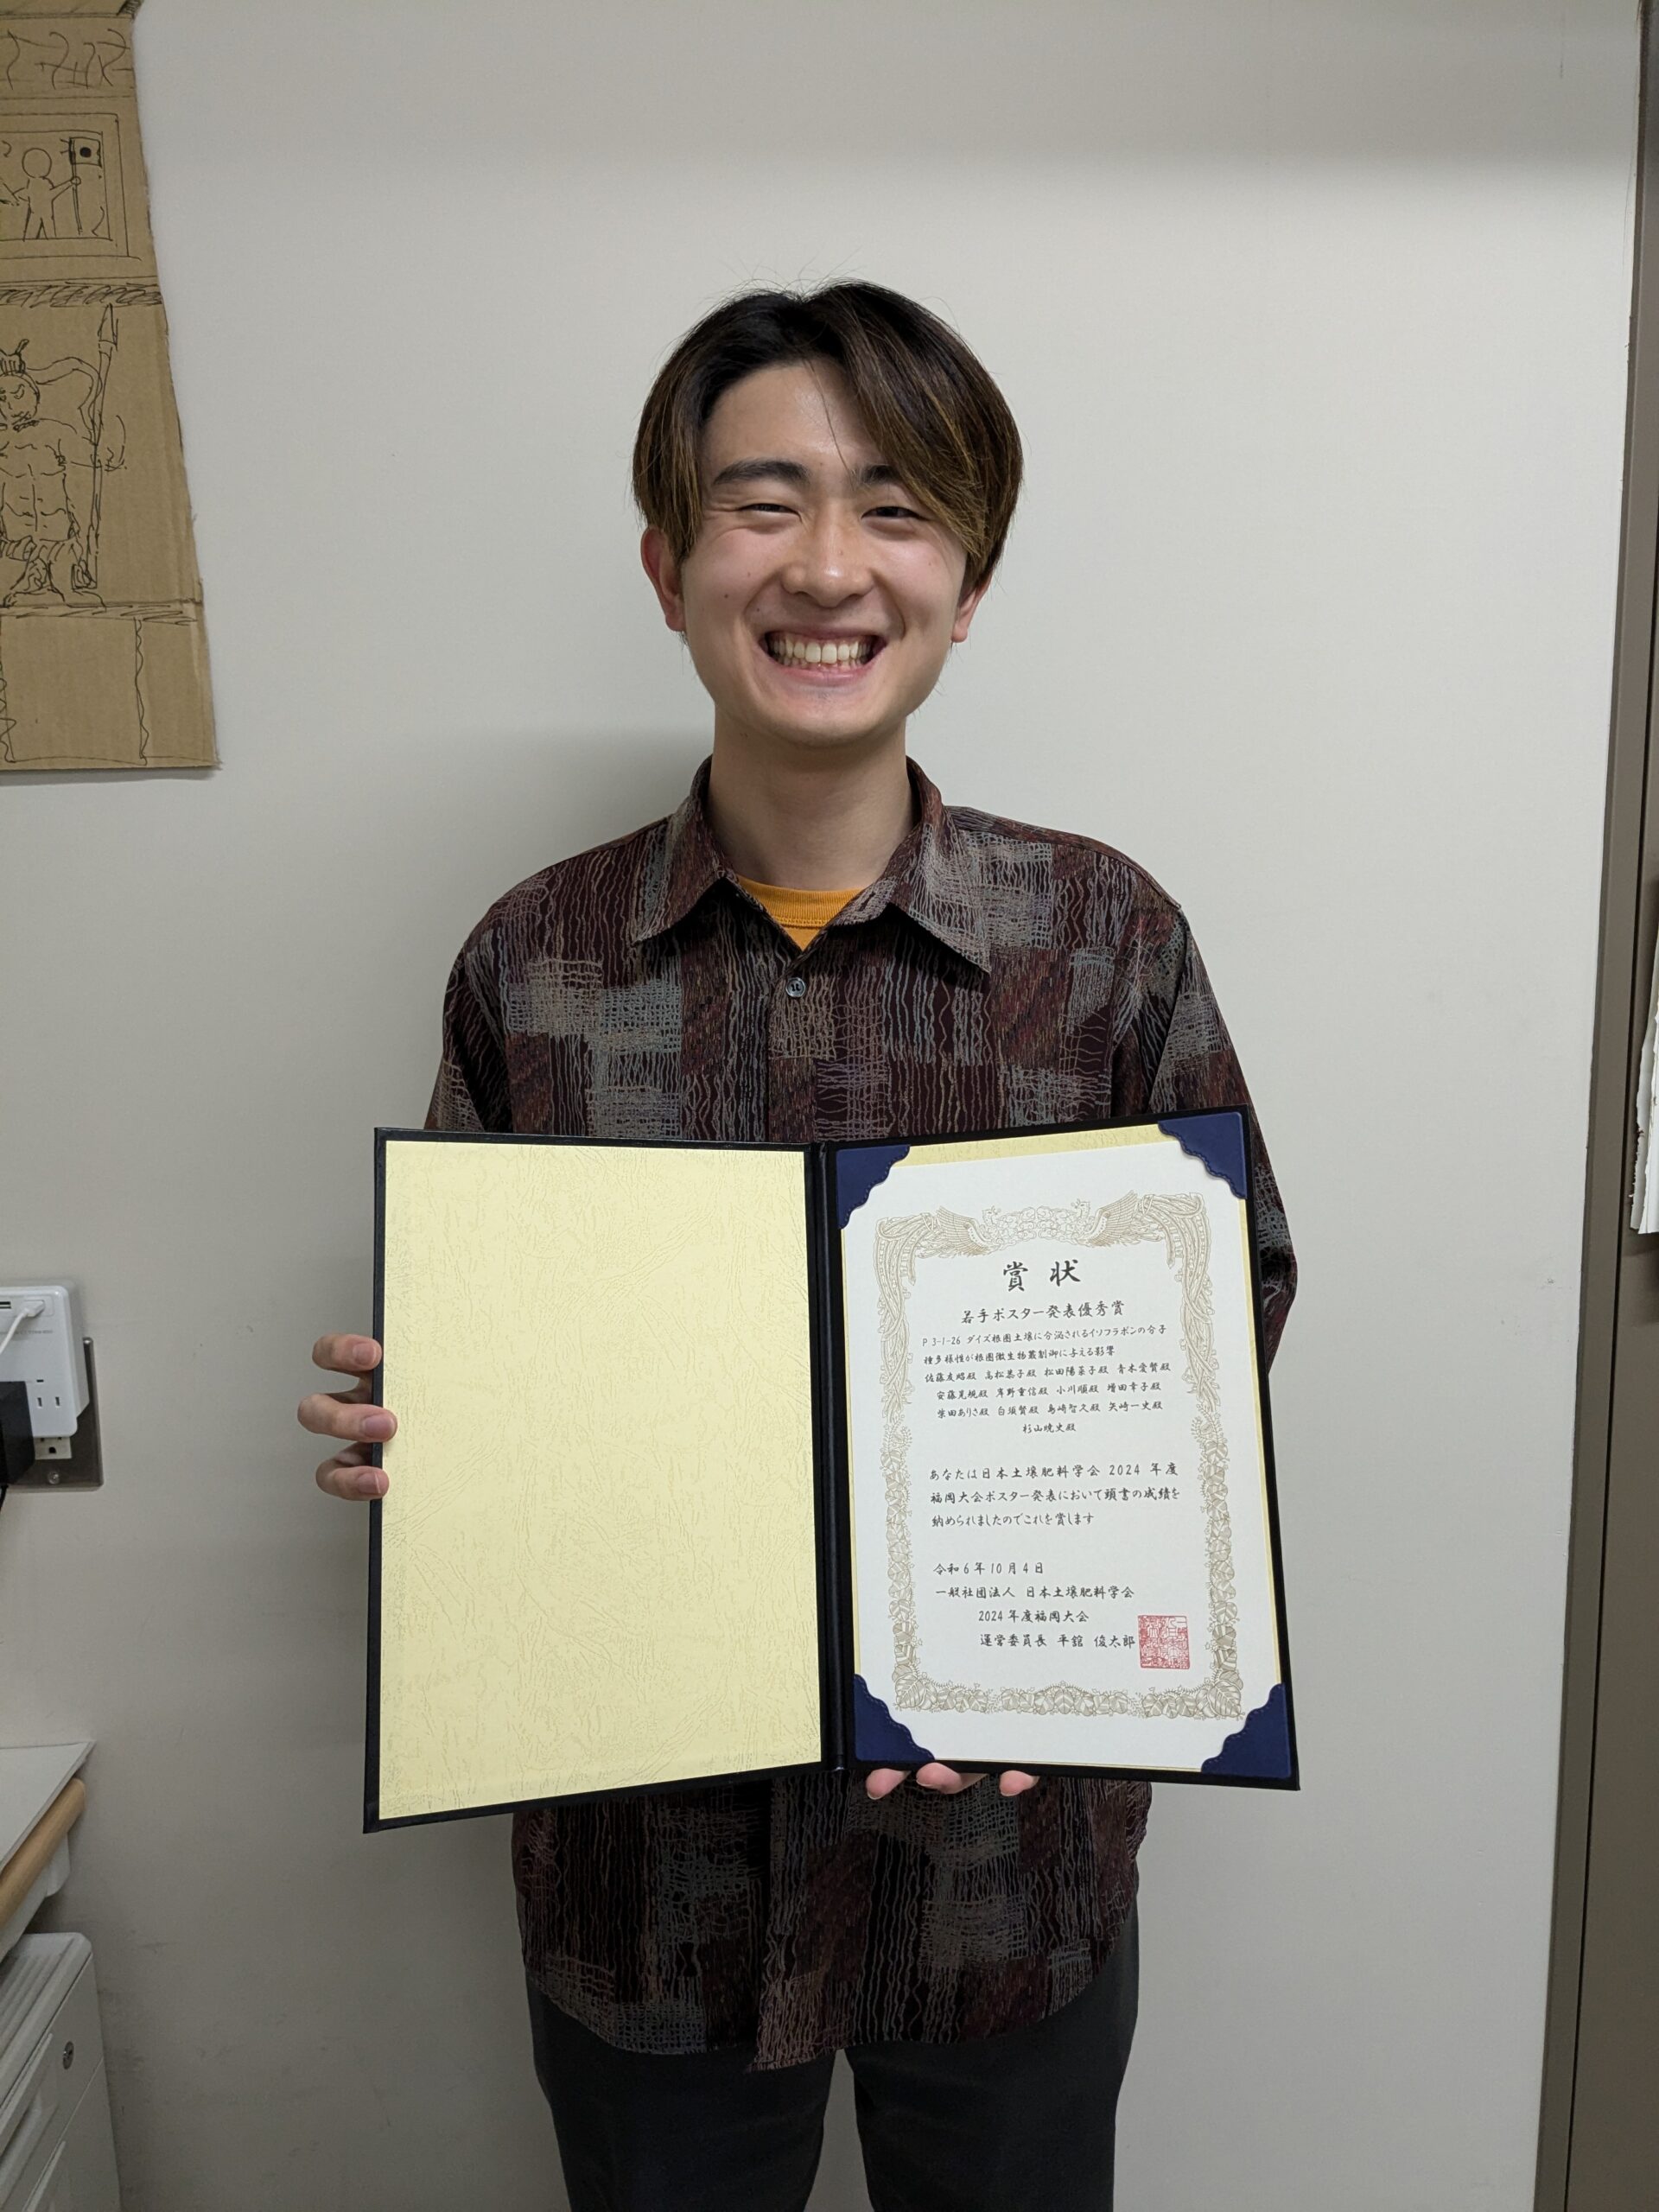 賞状
若手ポスター発表優秀賞
P 3-1-26 ダイズ根圏土壌に分泌されるイソフラボンの分子
種多様性が根圏微生物叢制御に与える影響
佐藤友昭殿 高松恭子殿 松田陽菜子殿 青木愛賢殿
安藤晃規殿 岸野重信殿 小川順殿 増田幸子殿
柴田ありさ殿 白須賢殿 島崎智久殿 矢崎一史殿
杉山暁史殿
あなたは日本土壌肥料学会 2024 年度
福岡大会ポスター発表において頭書の成績を
納められましたのでこれを賞します
令和6年10月4日
一般社団法人 日本土壌肥料学会
2024 年度福岡大会
運営委員長 平舘 俊太郎